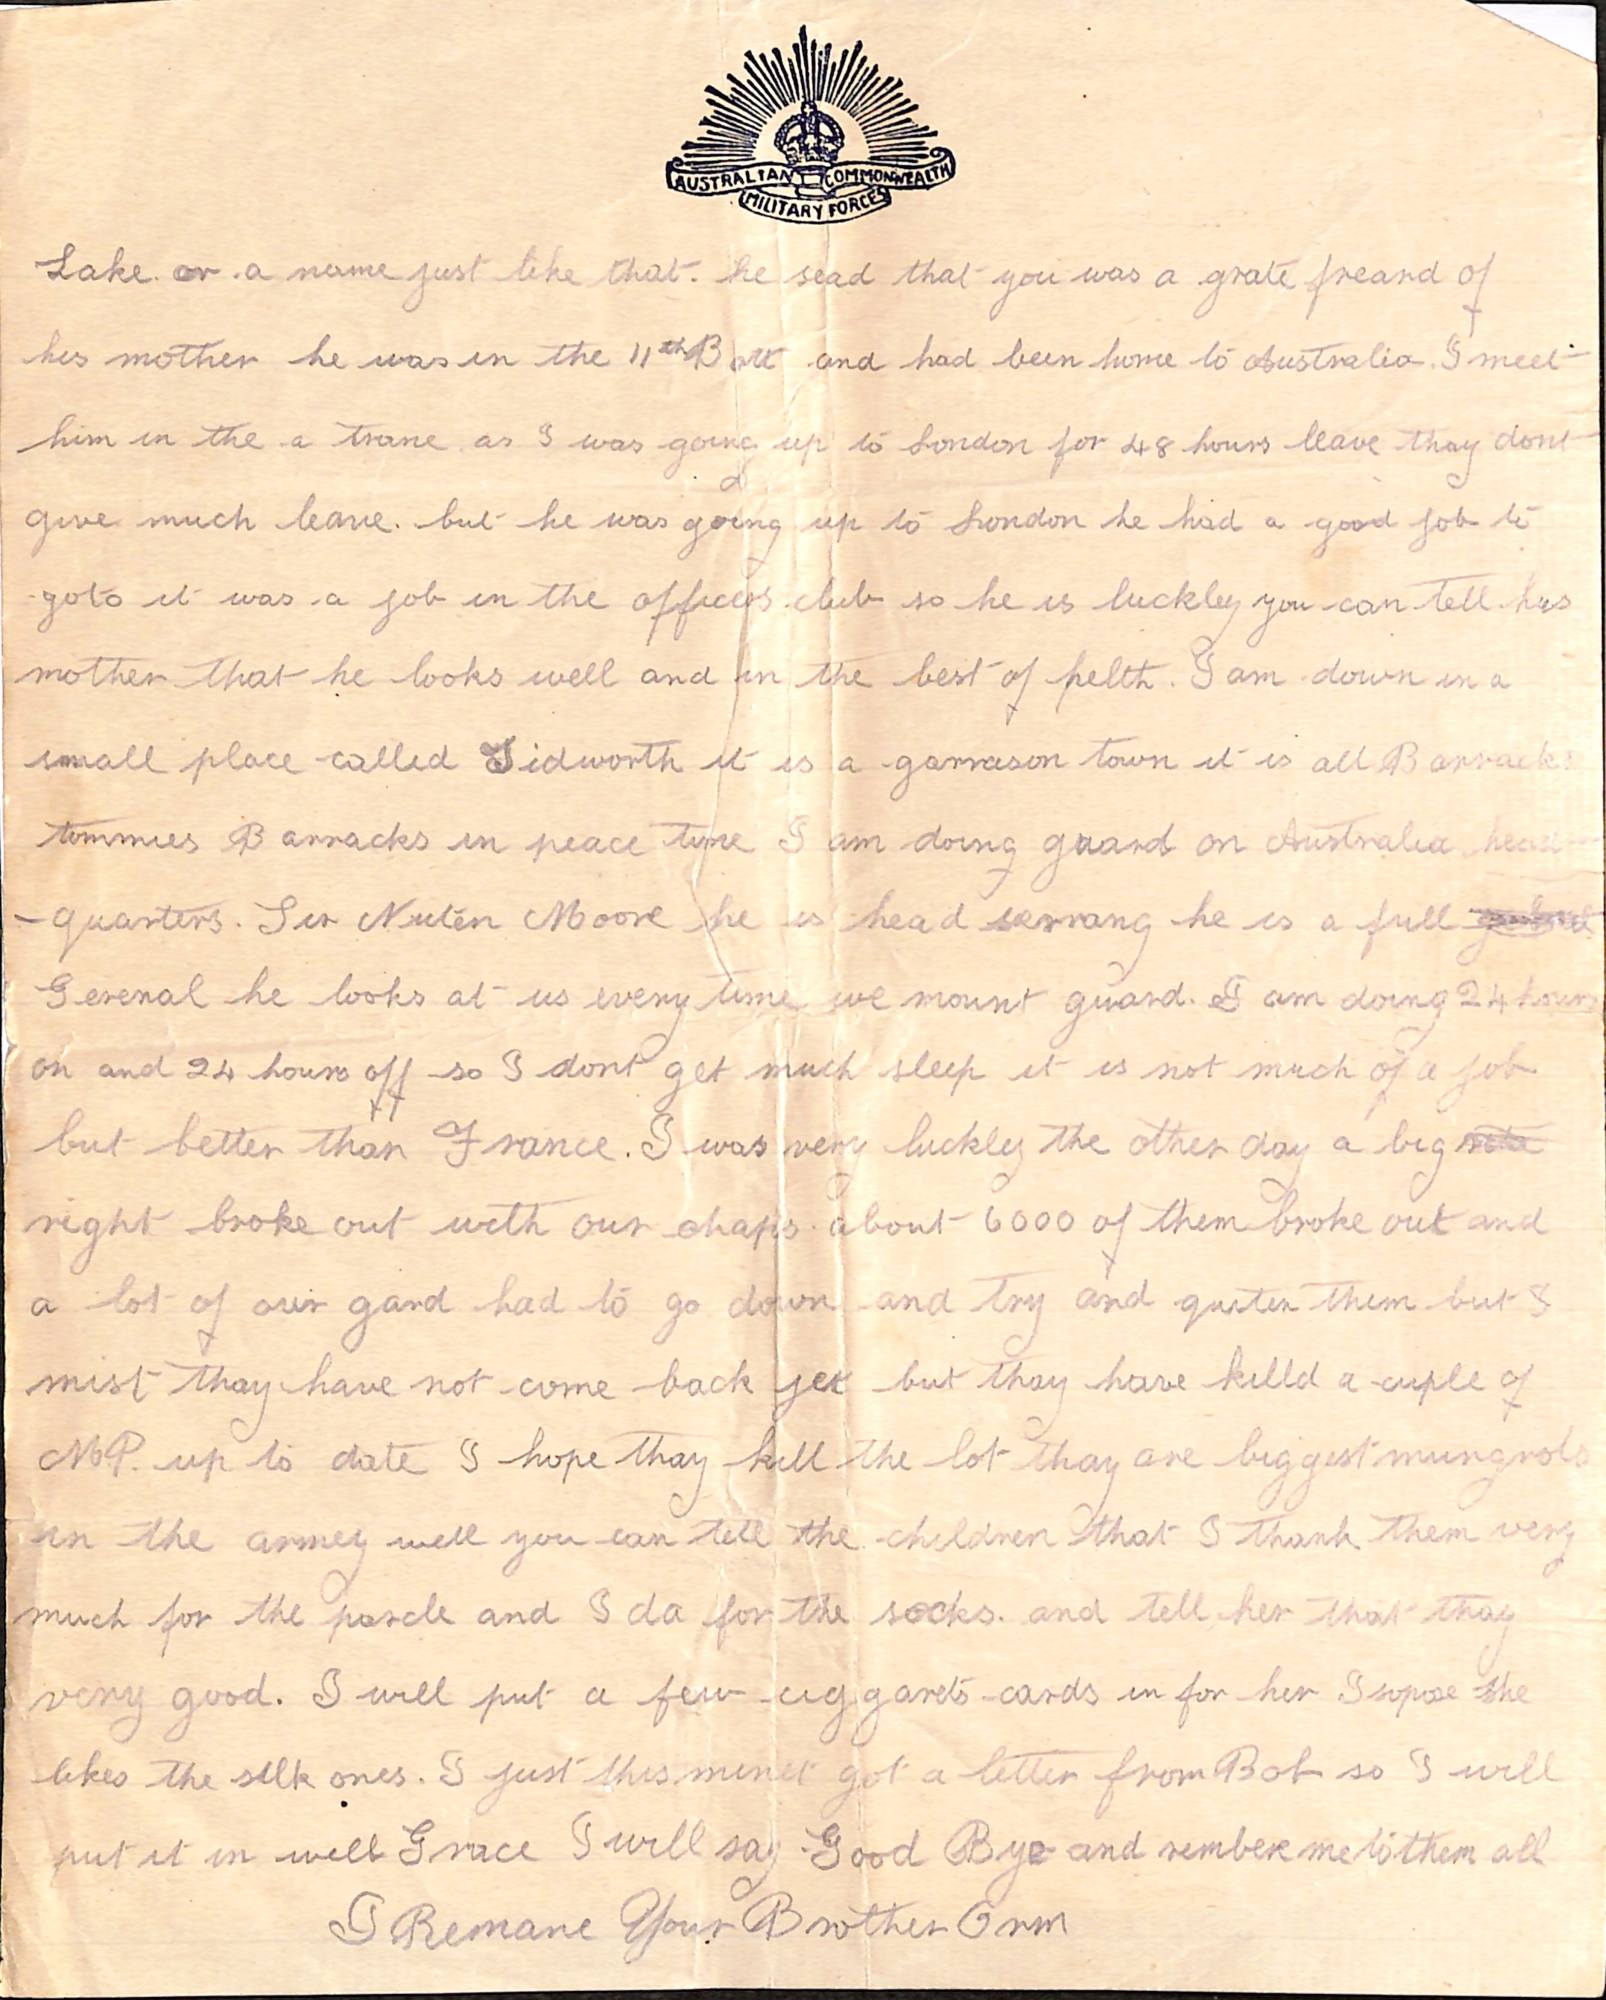 AUSTRALIAN COMMONWEALTH
MILITARY FORCES
Lake. or a name just like that. he sead that you was a grate freand of
his mother he was in the 11th Batt and had been home to Australia. I meet
him in the a trane as I was going up to London for 48 hours leave thay dont
give much leave. but he was going up to London he had a good job to
goto it was a job in the officers club so he is luckley you can tell his
mother that he looks well and in the best of helth. I am down in a
small place called Tidworth it is a garrason town it is all Barracks
tommies Barracks in peace time I am doing guard on Australia head-
-quarters. Sir Nuten Moore he is head serrang he is a full
Gerenal he looks at us every time we mount guard. I am doing 24 hours
on and 24 hours off so I dont get much sleep it is not much of a job
but better than France. I was very luckley the other day a big
right broke out with our chaps about 6000 of them broke out and
a lot of our gard had to go down and try and quiten them but I
mist thay have not come back yet but thay have killd a cuple of
M.P. up to date I hope thay kill the lot thay are biggest mungrols
in the armey well you can tell the children that I thank them very
much for the parcle and I da for the socks. and tell her that thay
very good. I will put a few ciggarets cards in for her I supose she
likes the silk ones. I just this minet got a letter from Bob so I will
put it in well Grace I will say Good Bye and rember me to them all
I Remane Your Brother Orm